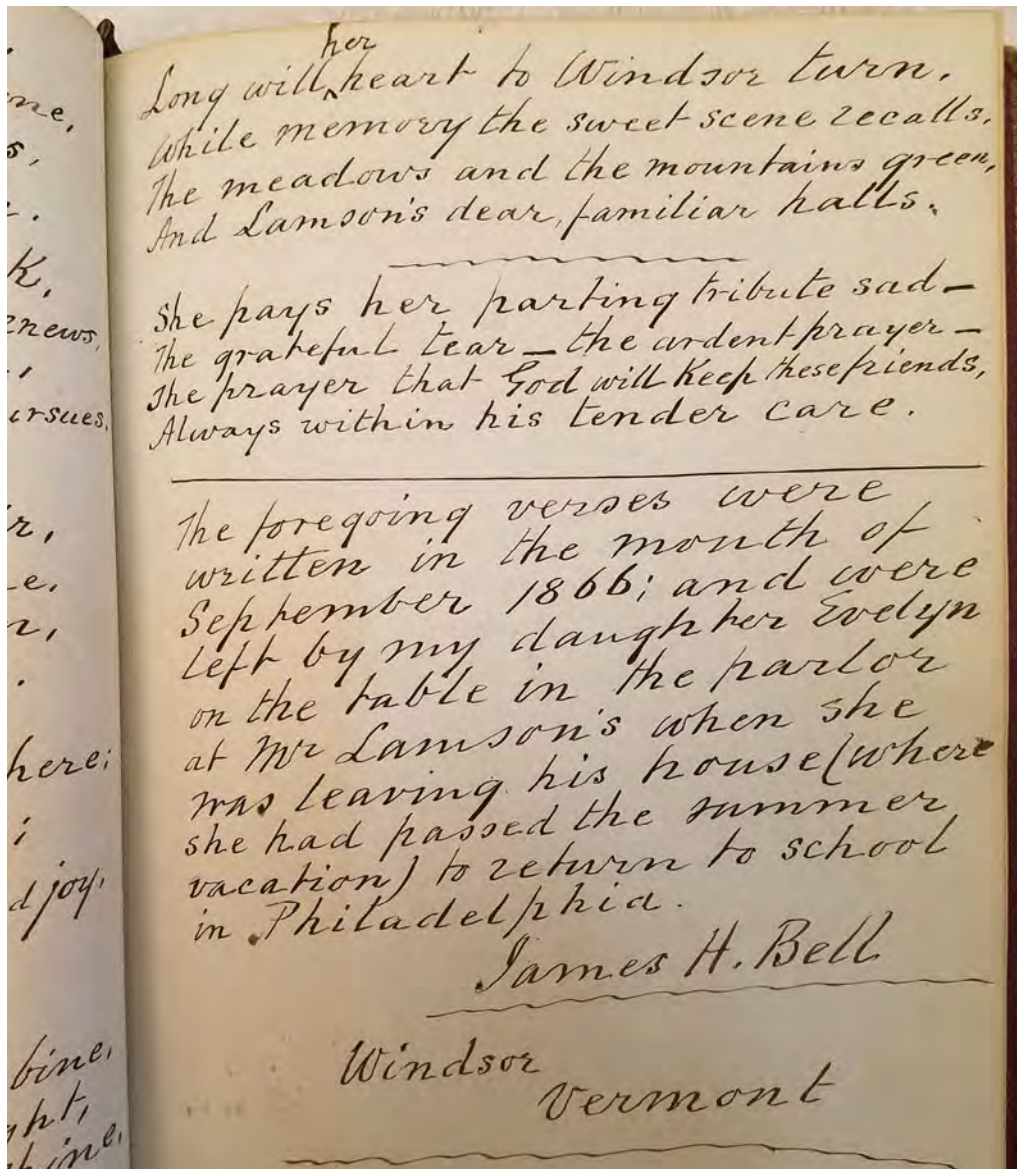 ne,
s,
K,
enews,
ursues.
r,
e.
n,
here;
;
d joy.
bine,
ght,
hine,
Long will her heart to Windsor turn,
While memory the sweet scene recalls,
The meadows and the mountains green,
And Lamson's dear, familiar halls.
She pays her parting tribute sad—
The grateful tear — the ardent prayer —
The prayer that God will Keep these friends,
Always within his tender care.
The foregoing verses were
written in the month of
September 1866; and were
left by my daughter Evelyn
on the table in the parlor
at Mr Lamson's when she
was leaving his house (where
she had passed the summer
vacation) to return to school
in Philadelphia.
James H. Bell
Windsor
Vermont